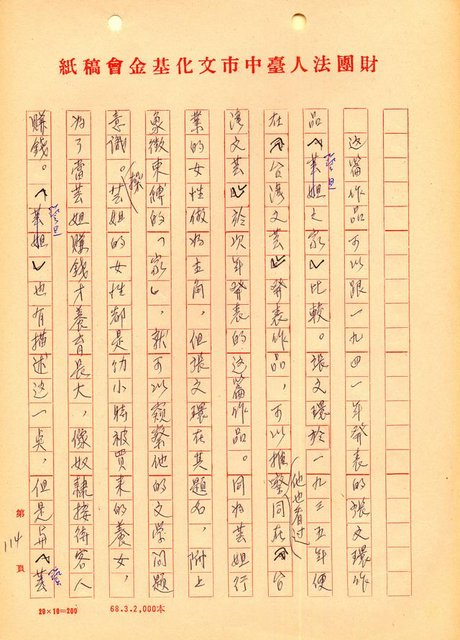 財團法人臺中市文化基金會稿紙
这篇作品可以跟一九四一年發表的張文環作
品〈芸妲之家〉比較。張文環於一九三五年便
藝旦
在〈台湾文芸〉發表作品，可以推察同在〈台
他也看过
湾文芸〉於次年發表的这篇作品。同为芸妲行
業的女性做为主角，但張文環在其題名，附上
象徵束縛的「家」，就可以窺察他的文学问題
意識。芸妲的女性都是幼小時被買来的養女，
为了當芸妲賺錢才養育長大，像奴隸接待客人
賺錢。〈芸妲〉也有描述这一点，但是与〈芸
藝旦
藝
第114頁
20×10=200
68.3.2,000本